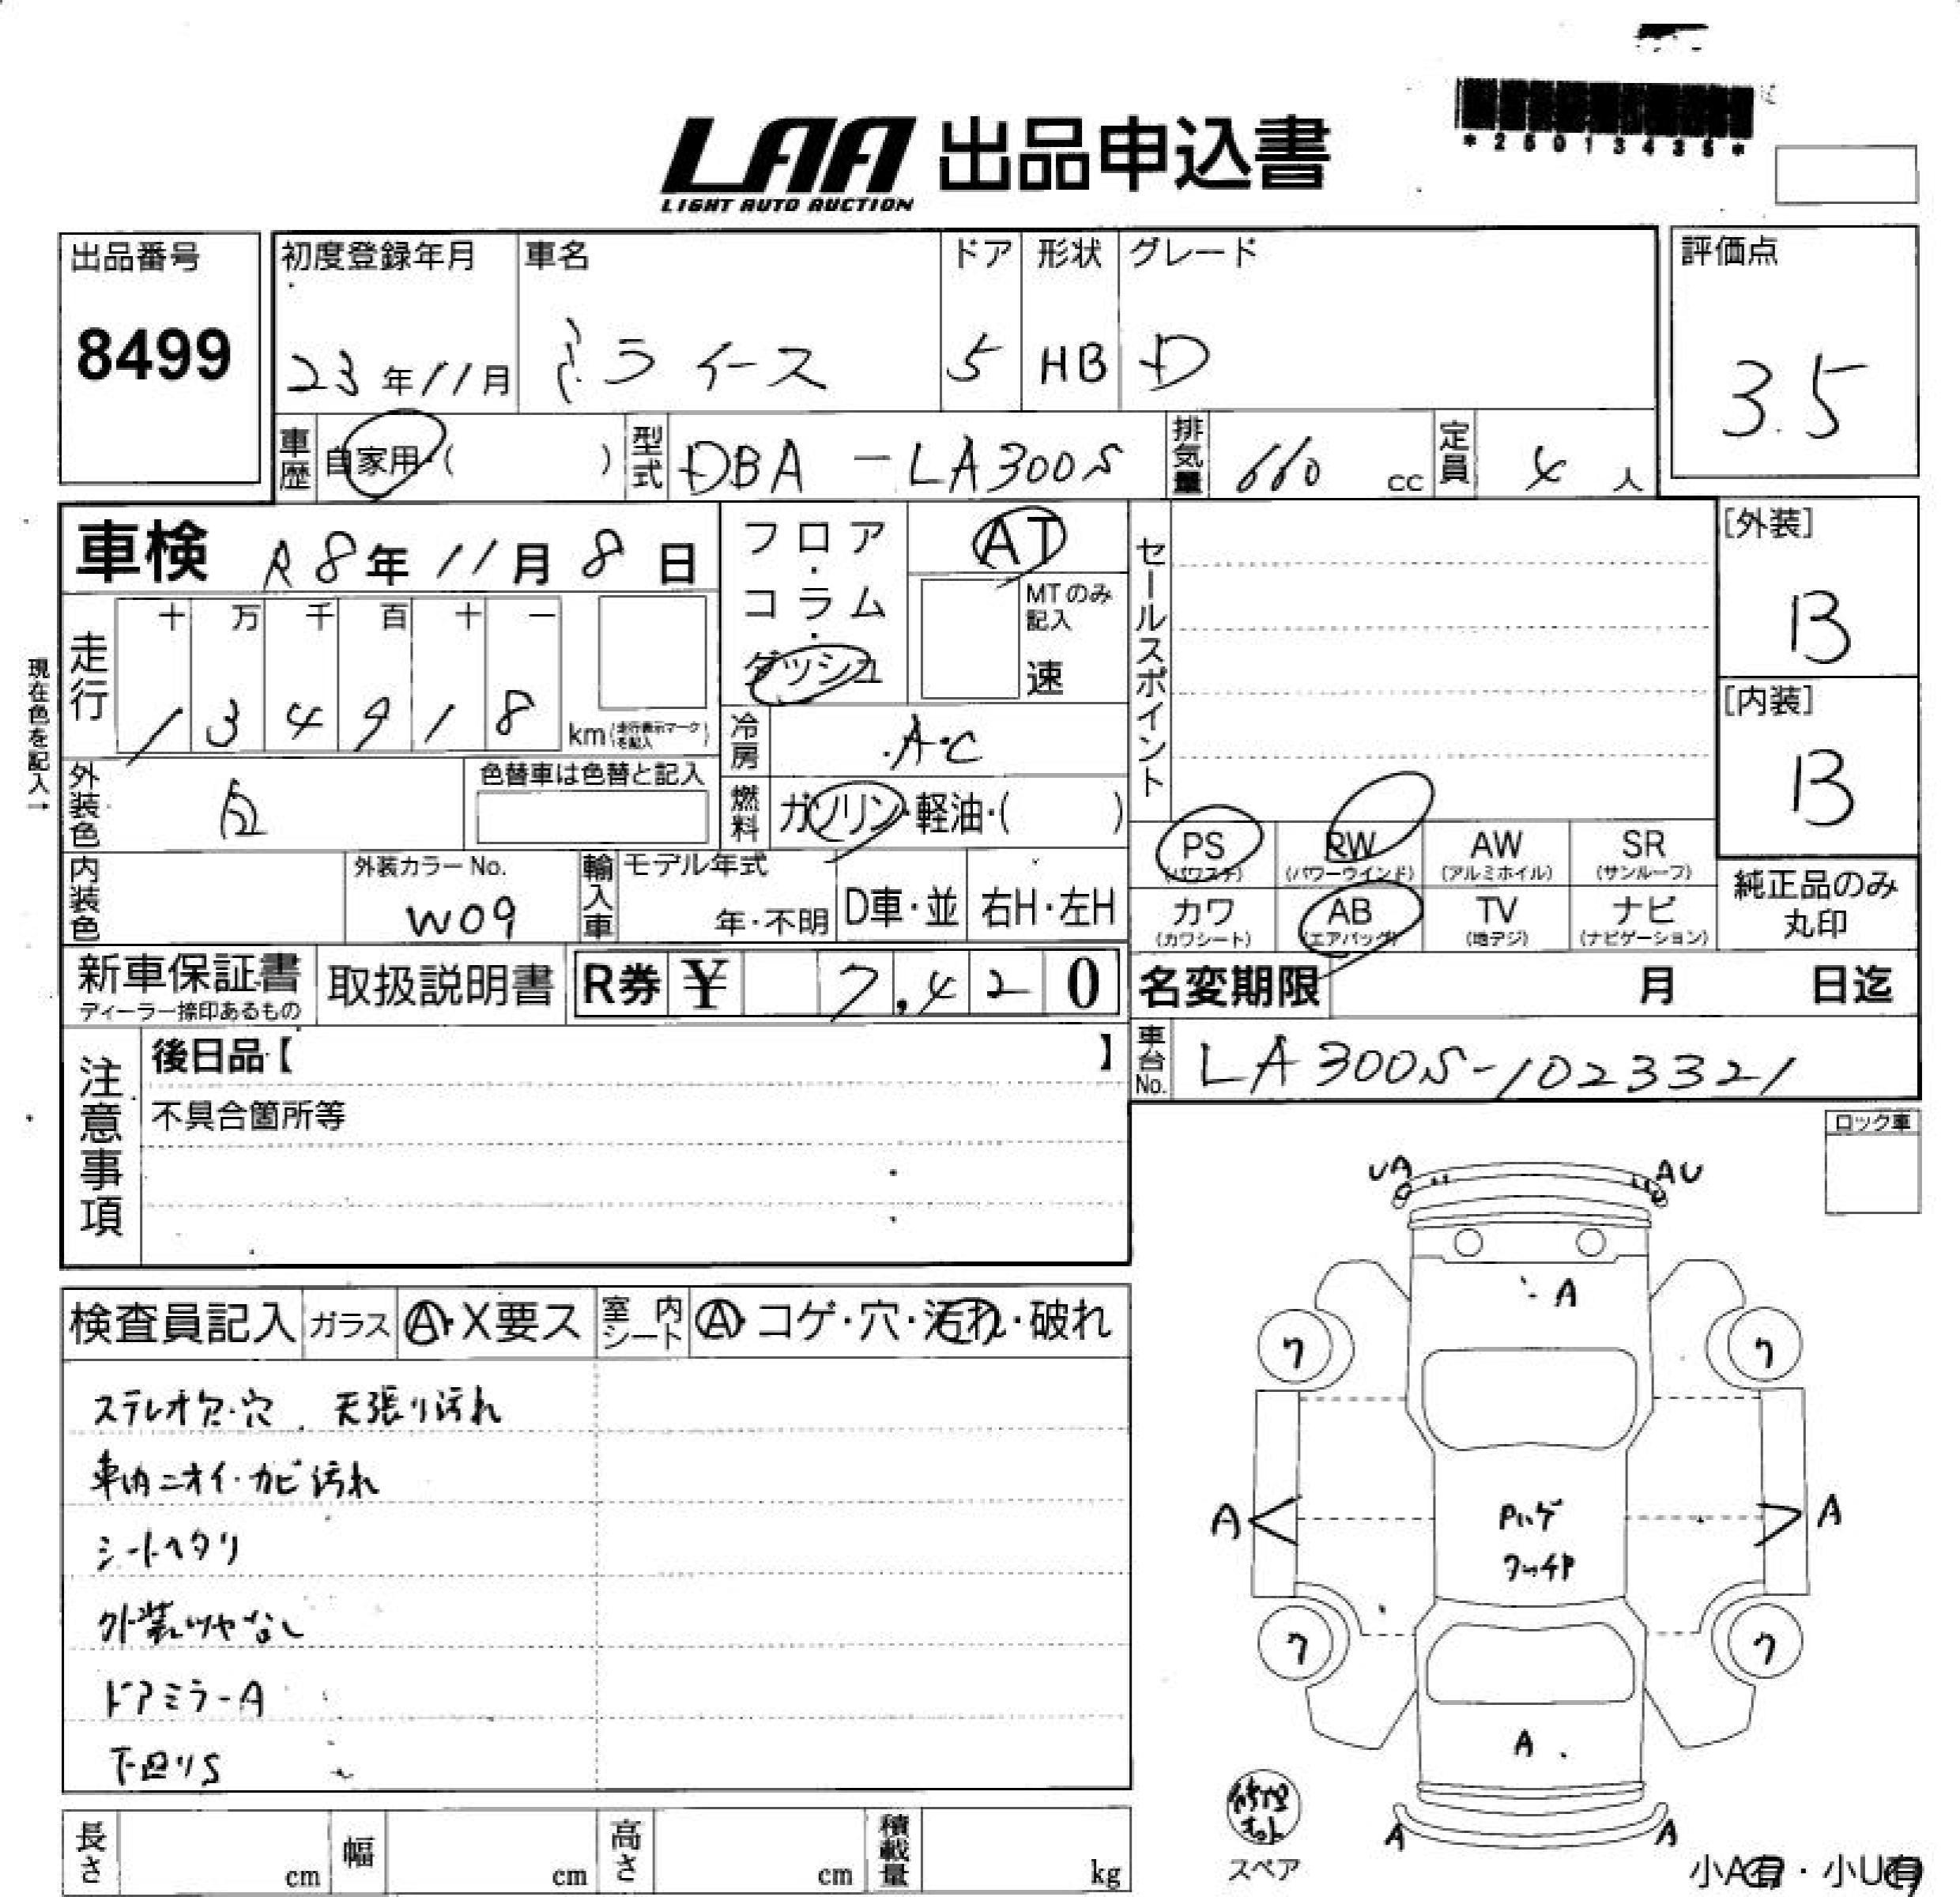 *25013435*
LAA 出品申込書
LIGHT AUTO AUCTION
出品番号
8499
初度登録年月
23年11月
車名
ミライース
ドア
5
形状
HB
グレード
D
評価点
3.5
車歴 自家用・( )
型式 DBA-LA300S
排気量 660 cc
定員 4人
車検 R8年11月8日
フロア・コラム・ダッシュ
AT
MTのみ記入
速
セールスポイント
[外装]
B
[内装]
B
現在色を記入→
走行
十 万 千 百 十 一
1 3 4 9 1 8
km(走行表示マークを記入)
冷房 A・C
外装色 白
色替車は色替と記入
燃料 ガソリン・軽油・( )
PS (パワステ)
PW (パワーウインド)
AW (アルミホイル)
SR (サンルーフ)
カワ (カワシート)
AB (エアバッグ)
TV (地デジ)
ナビ (ナビゲーション)
純正品のみ
丸印
内装色
外装カラーNo.
W09
輸入車
モデル年式
年・不明
D車・並
右H・左H
新車保証書
ディーラー捺印あるもの
取扱説明書
R券 ¥ 7,420
名変期限 月 日迄
車台No. LA300S-1023321
注意事項
後日品【 】
不具合箇所等
ロック車
検査員記入 ガラス A・X要ス 室内シート A・コゲ・穴・汚れ・破れ
ステレオ欠・穴 天張り汚れ
車内ニオイ・カビ汚れ
シートヘタリ
外装ツヤなし
ドアミラーA
下回りS
UA
AU
A
ワ
ワ
A
A
Pハゲ
ワ
ワ
A
A
A
スペア
小A有・小U有
長さ cm
幅 cm
高さ cm
積載量 kg